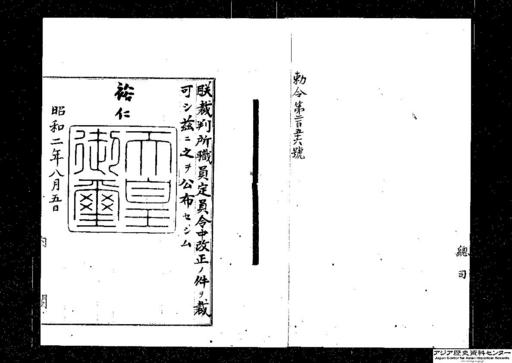 勅令第二百五十六號
總
司
朕裁判所職員定員令中改正ノ件ヲ裁
可シ茲ニ之ヲ公布セシム
裕仁
天皇御璽
昭和二年八月五日
内
閣
アジア歴史資料センター
Japan Center for Asian Historical Records